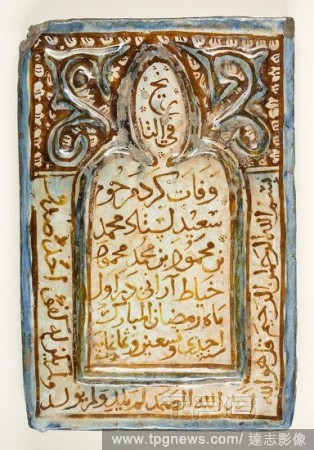 في التاريخ
وفات کرد مرحوم
سعید استاد محمد
بن محمود بن محمد محمود
خیاط آرانی در اول
ماه رمضان المبارک
احدی و تسعین و ثمانمایه
بسم الله الرحمن الرحیم قل هو الله
احد الله الصمد لم یلد ولم یولد
ولم یکن له کفوا احد
www.tpgnews.com/ 達志影像